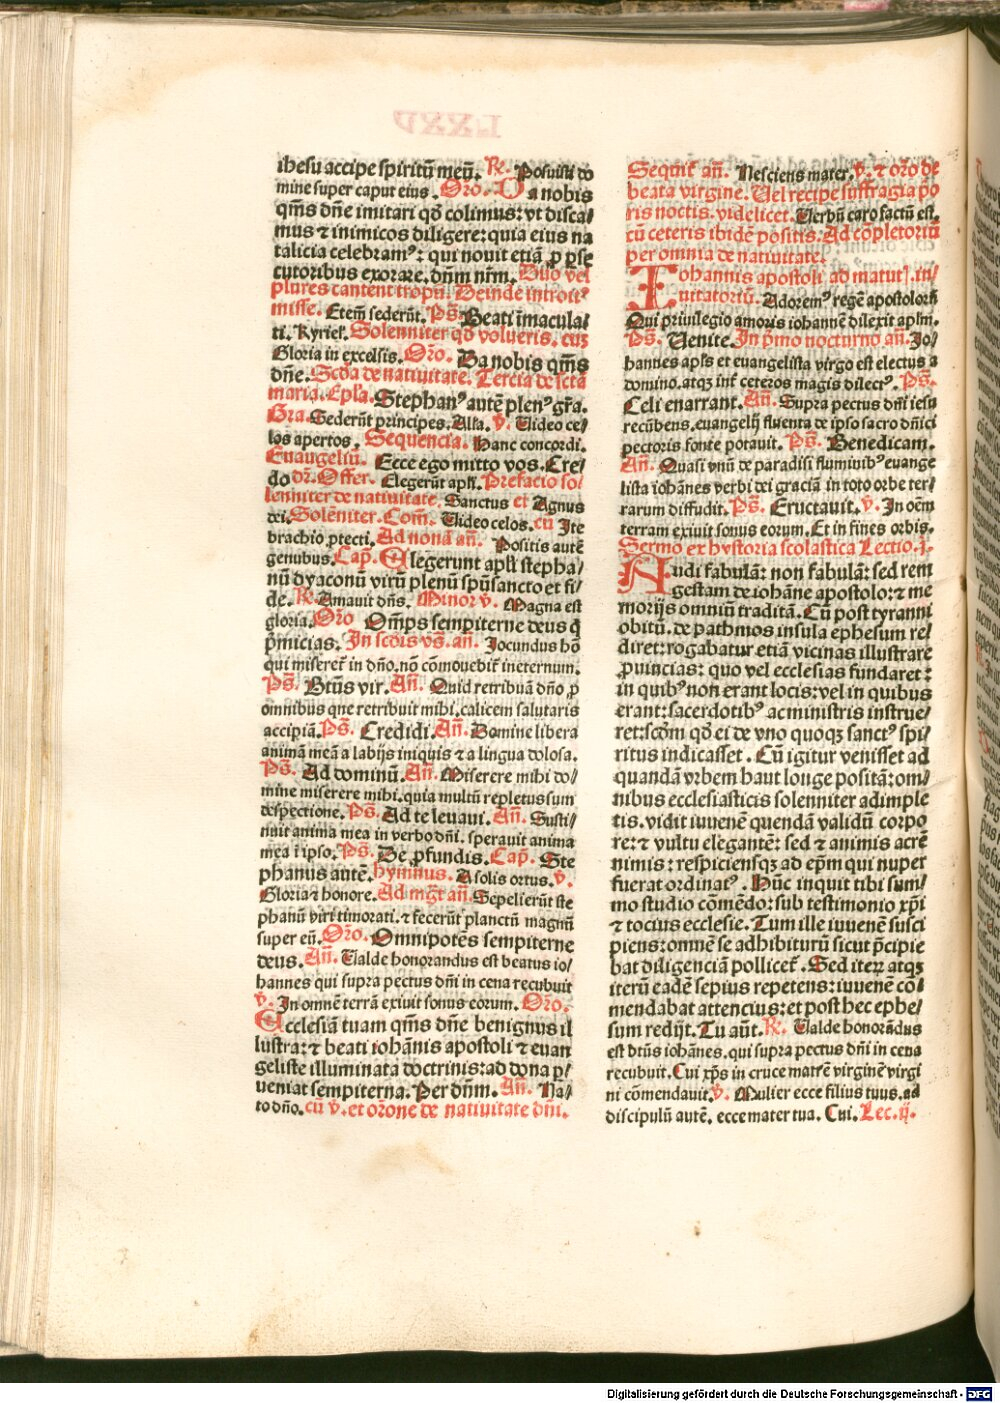 ihesu accipe spiritū meū. R̃. Posuisti do
mine super caput eius. Orō. Da nobis
qm̄s dn̄e imitari qd̄ colimus: vt disca/
mus ⁊ inimicos diligere: quia eius na
talicia celebramꝰ: qui nouit etiā ꝓ ꝑse
cutoribus exorare. dn̄m nr̄m. Duo vel
plures cantent tropū. Deinde introitꝰ
misse. Etem̄ sederūt. Ps̄. Beati īmacula/
ti. Kyriel. Solenniter qd̄ volueris. cuȝ
Gloria in excelsis. Orō. Da nobis qm̄s
dn̄e. Scd̄a de natiuitate. Tercia de sctā
maria. Epl̄a. Stephanꝰ autē plenꝰ gr̄a.
Gra. Sederūt principes. Alla. v̄. Video ce/
los apertos. Sequencia. Hanc concordi.
Euangeliū. Ecce ego mitto vos. Cre/
do dr̄. Offer. Elegerūt apl̄i. Prefacio so/
lenniter de natiuitate. Sanctus et Agnus
dei. Solēniter. Com̄. Video celos. cū Ite
brachio ꝓtecti. Ad nonā an̄. Positis autē
genubus. Cap̄. Elegerunt apl̄i stepha/
nū dyaconū virū plenū spū sancto et fi/
de. R̃. Amauit dn̄s. Minor v̄. Magna est
gloria. Orō Om̄ps sempiterne deus q̄
p̄micias. In scd̄is vs̄. an̄. Jocundus hō
qui miseret̄ in dn̄o. nō cōmouebit̄ ineternum.
Ps̄. Bt̄us vir. An̄. Quid retribuā dn̄o ꝓ
omnibus que retribuit mihi. calicem salutaris
accipiā. Ps̄. Credidi. An̄. Domine libera
animā meā a labijs iniquis ⁊ a lingua dolosa.
Ps̄. Ad dominū. An̄. Miserere mihi do/
mine miserere mihi. quia multū repletus sum
despectione. Ps̄. Ad te leuaui. An̄. Susti/
nuit anima mea in verbo dn̄i. sperauit anima
mea ī ipso. Ps̄. De ꝓfundis. Cap̄. Ste
phanus autē. hymnus. A solis ortus. v̄.
Gloria ⁊ honore. Ad mg̃t an̄. Sepelierūt ste
phanū viri timorati. ⁊ fecerūt planctū magnū
super eū. Orō. Omnipotēs sempiterne
deus. An̄. Valde honorandus est beatus io/
hannes qui supra pectus dn̄i in cena recubuit
v̄. In omnē terrā exiuit sonus eorum. Orō.
Ecclesiā tuam qm̄s dn̄e benignus il
lustra: ⁊ beati iohānis apostoli ⁊ euan
geliste illuminata doctrinis: ad dona ꝑ/
ueniat sempiterna. Per dn̄m. An̄. Na/
to dn̄o. cū v̄. et or̄one de natiuitate dn̄i.
Sequit̄ an̄. Nesciens mater. v̄. ⁊ orō de
beata virgine. Vel recipe suffragia po
ris noctis. videlicet. Verbū caro factū est.
cū ceteris ibidē positis. Ad cōpletoriū
per omnia de natiuitate.
Iohannis apostoli ad matut̄. in/
uitatoriū. Adoremꝰ regē apostolorū
Qui priuilegio amoris iohannē dilexit apl̄m.
Ps̄. Venite. In p̄mo nocturno an̄. Jo/
hannes apl̄s et euangelista virgo est electus a
domino. atqȝ int̄ ceteros magis dilectꝰ. Ps̄.
Celi enarrant. An̄. Supra pectus dn̄i iesu
recūbens. euangelij fluenta de ipso sacro dn̄ici
pectoris fonte potauit. Ps̄. Benedicam.
An̄. Quasi vnū de paradisi fluminibꝰ euange
lista iohānes verbi dei graciā in toto orbe ter/
rarum diffudit. Ps̄. Eructauit. v̄. In oēm
terram exiuit sonus eorum. Et in fines orbis.
Sermo ex hystoria scolastica Lectio .j.
Audi fabulā: non fabulā: sed rem
gestam de iohāne apostolo: ⁊ me
morijs omniū traditā. Cū post tyranni
obitū. de pathmos insula ephesum re/
diret: rogabatur etiā vicinas illustrare
ꝓuincias: quo vel ecclesias fundaret:
in quibꝰ non erant locis: vel in quibus
erant: sacerdotibꝰ ac ministris instrue/
ret: scd̄m qd̄ ei de vno quoqȝ sanctꝰ spi/
ritus indicasset. Cū igitur venisset ad
quandā vrbem haut longe positā: om/
nibus ecclesiasticis solenniter adimple
tis. vidit iuuenē quendā validū corpo
re: ⁊ vultu elegantē: sed ⁊ animis acrē
nimis: respiciensqȝ ad ep̄m qui nuper
fuerat ordinatꝰ. Hūc inquit tibi sum/
mo studio cōmēdo: sub testimonio xp̄i
⁊ tocius ecclesie. Tum ille iuuenē susci
piens: omnē se adhibiturū sicut p̄cipie
bat diligenciā pollicet̄. Sed iteꝝ atqȝ
iterū eadē sepius repetens: iuuenē cō/
mendabat attencius: et post hec ephe/
sum redijt. Tu aūt. R̃. Valde honorādus
est bt̄us iohānes. qui supra pectus dn̄i in cena
recubuit. Cui xp̄s in cruce matrē virginē virgi
ni cōmendauit. v̄. Mulier ecce filius tuus. ad
discipulū autē. ecce mater tua. Cui. Lec. ij.
Digitalisierung gefördert durch die Deutsche Forschungsgemeinschaft - DFG